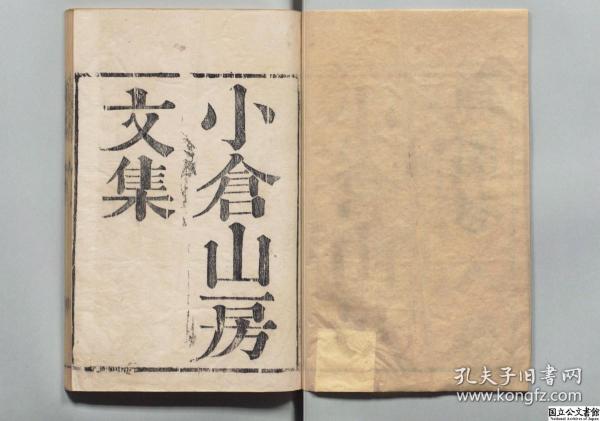 小倉山房
文集
孔夫子旧書网
www.kongfz.com
国立公文書館
National Archives of Japan